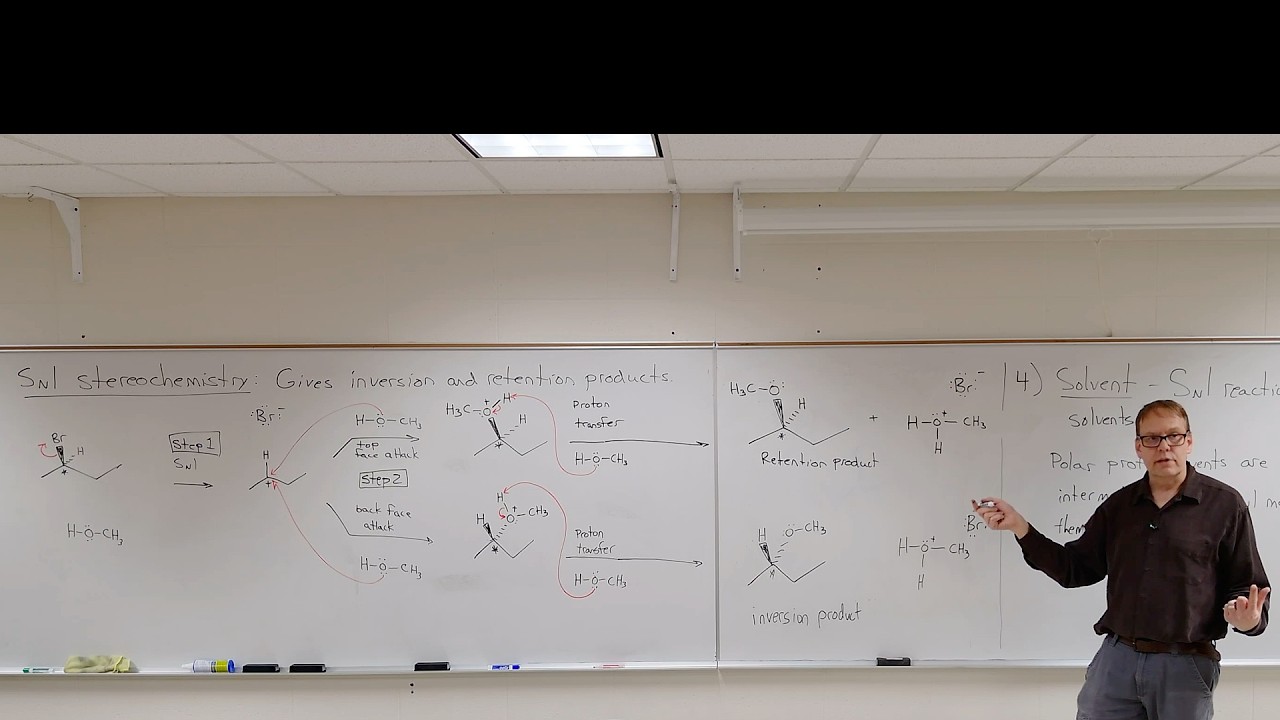 SN1 stereochemistry: Gives inversion and retention products.
Br
H
*
H-Ö-CH3
Step 1
SN1
:Br:-
H
+
H-Ö-CH3
top
face attack
Step 2
back face
attack
H-Ö-CH3
H3C-O+
H
H
*
H
H
O+-CH3
*
Proton
transfer
H-Ö-CH3
Proton
transfer
H-Ö-CH3
H3C-Ö:
H
*
Retention product
+
:Br:-
H-Ö+-CH3
H
H
:Ö-CH3
*
inversion product
:Br:
H-Ö+-CH3
H
4) Solvent - SN1 reactio
solvents
Polar prot vents are
inter
them